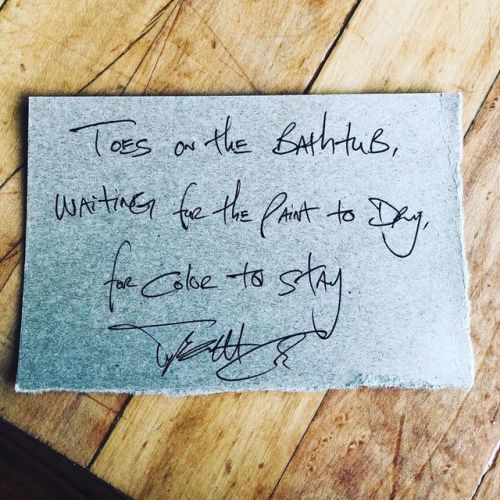 Toes on the Bathtub,
Waiting for the Paint to Dry,
for Color to stay.